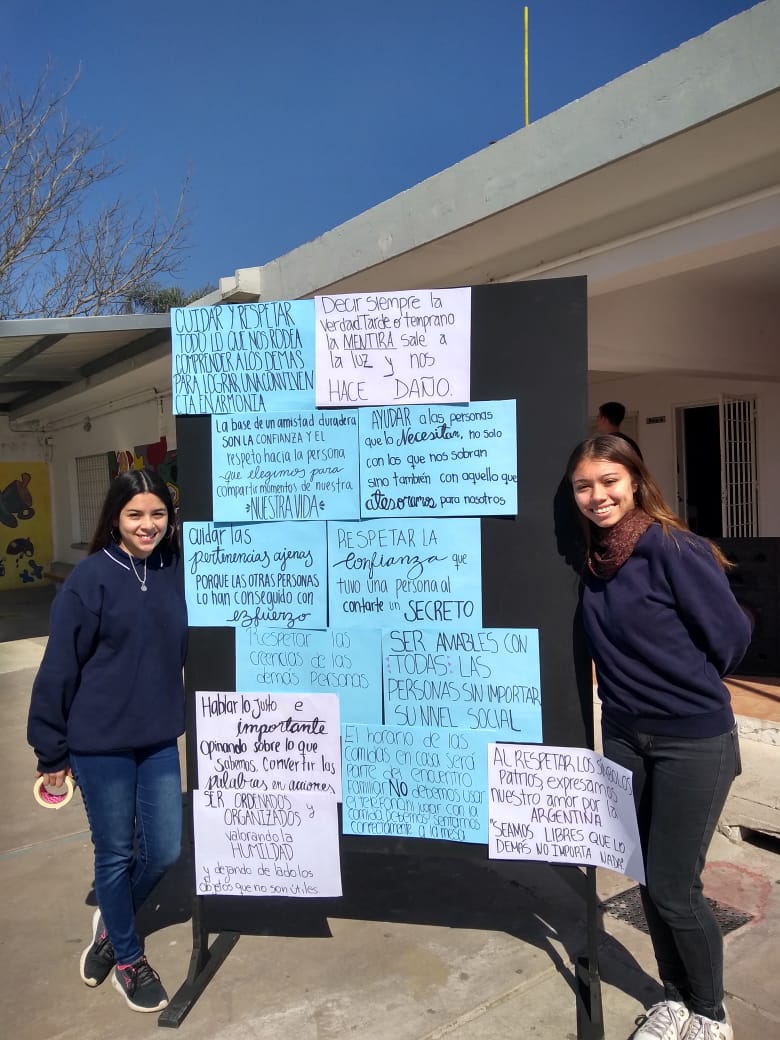 CUIDAR Y RESPETAR
TODO LO QUE NOS RODEA
COMPRENDER A LOS DEMAS
PARA LOGRAR UNA CONTIVEN
CIA EN ARMONIA
Decir siempre la
verdad. Tarde o temprano
la MENTIRA sale a
la luz y nos
HACE DAÑO.
La base de un amistad duradera
SON LA CONFIANZA Y EL
respeto hacia la persona
que elegimos para
compartir momentos de nuestra
"NUESTRA VIDA"
AYUDAR a las personas
que lo Necesitan, no solo
con los que nos sobran
sino también con aquello que
atesoramos para nosotros
cuidar las
pertenencias ajenas
PORQUE LAS OTRAS PERSONAS
Lo han conseguido con
esfuerzo
RESPETAR LA
Confianza que
tuvo una persona al
contarte un SECRETO
Respetar las
creencias de las
demás Personas
SER AMABLES CON
"TODAS" LAS
PERSONAS SIN IMPORTAR
SU NIVEL SOCIAL
Hablar lo justo e
importante
Opinando sobre lo que
Sabemos. Convertir las
Palabras en acciones
SER ORDENADOS Y
ORGANIZADOS
valorando la
HUMILDAD
y dejando de lado los
objetos que no son útiles
El horario de las
Comidas en casa será
Parte del encuentro
Familiar NO debemos usar
el telefono ni jugar con la
comida Debemos sentarnos
correctamente a la mesa
AL RESPETAR LOS SÍMBOLOS
Patrios, expresamos
nuestro amor por la
ARGENTINA
"SEAMOS LIBRES QUE LO
DEMÁS NO IMPORTA NADA"